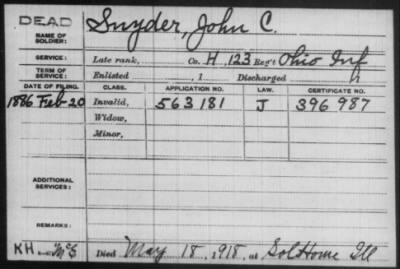 DEAD
NAME OF SOLDIER: Snyder, John C.
SERVICE: Late rank, Co. H, 123 Reg't Ohio Inf
TERM OF SERVICE: Enlisted , 1 Discharged
DATE OF FILING. CLASS. APPLICATION NO. LAW. CERTIFICATE NO.
1886 Feb 20 Invalid, 563 181 J 396 987
Widow,
Minor,
ADDITIONAL SERVICES:
REMARKS:
KH
Died May 18, 1918, at Sol Home Ill